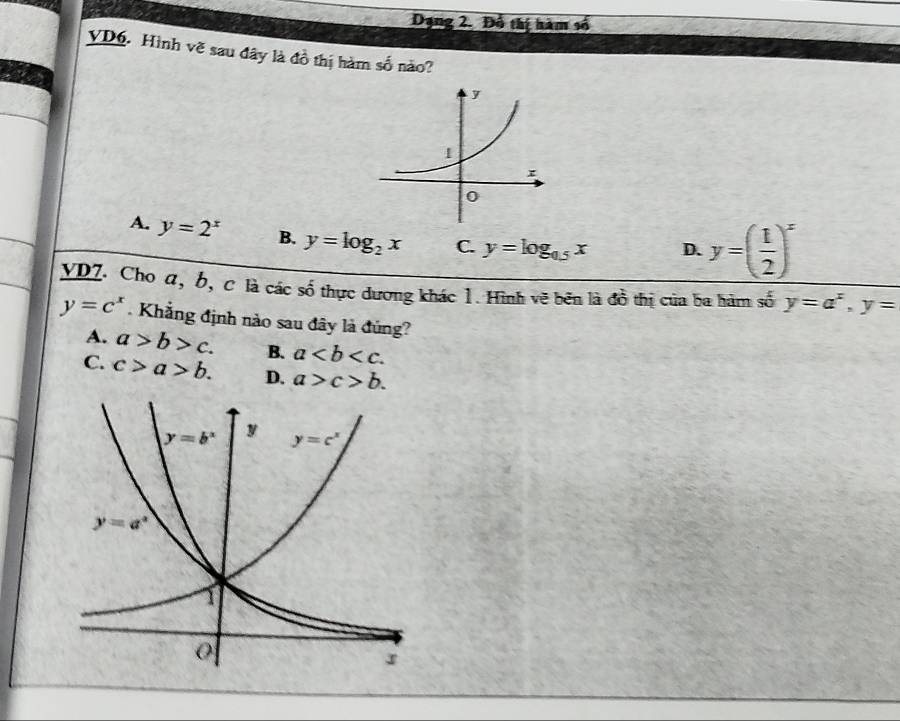 Dạng 2. Đồ thị hàm số
VD6. Hình vẽ sau đây là đồ thị hàm số nào?
y
1
x
O
A. y = 2^x B. y = log_2 x C. y = log_{0,5} x D. y = (1/2)^x
VD7. Cho a, b, c là các số thực dương khác 1. Hình vẽ bên là đồ thị của ba hàm số y = a^x, y =
y = c^x. Khẳng định nào sau đây là đúng?
A. a > b > c. B. a < b < c.
C. c > a > b. D. a > c > b.
y = b^x y y = c^x
y = a^x
1
O
x